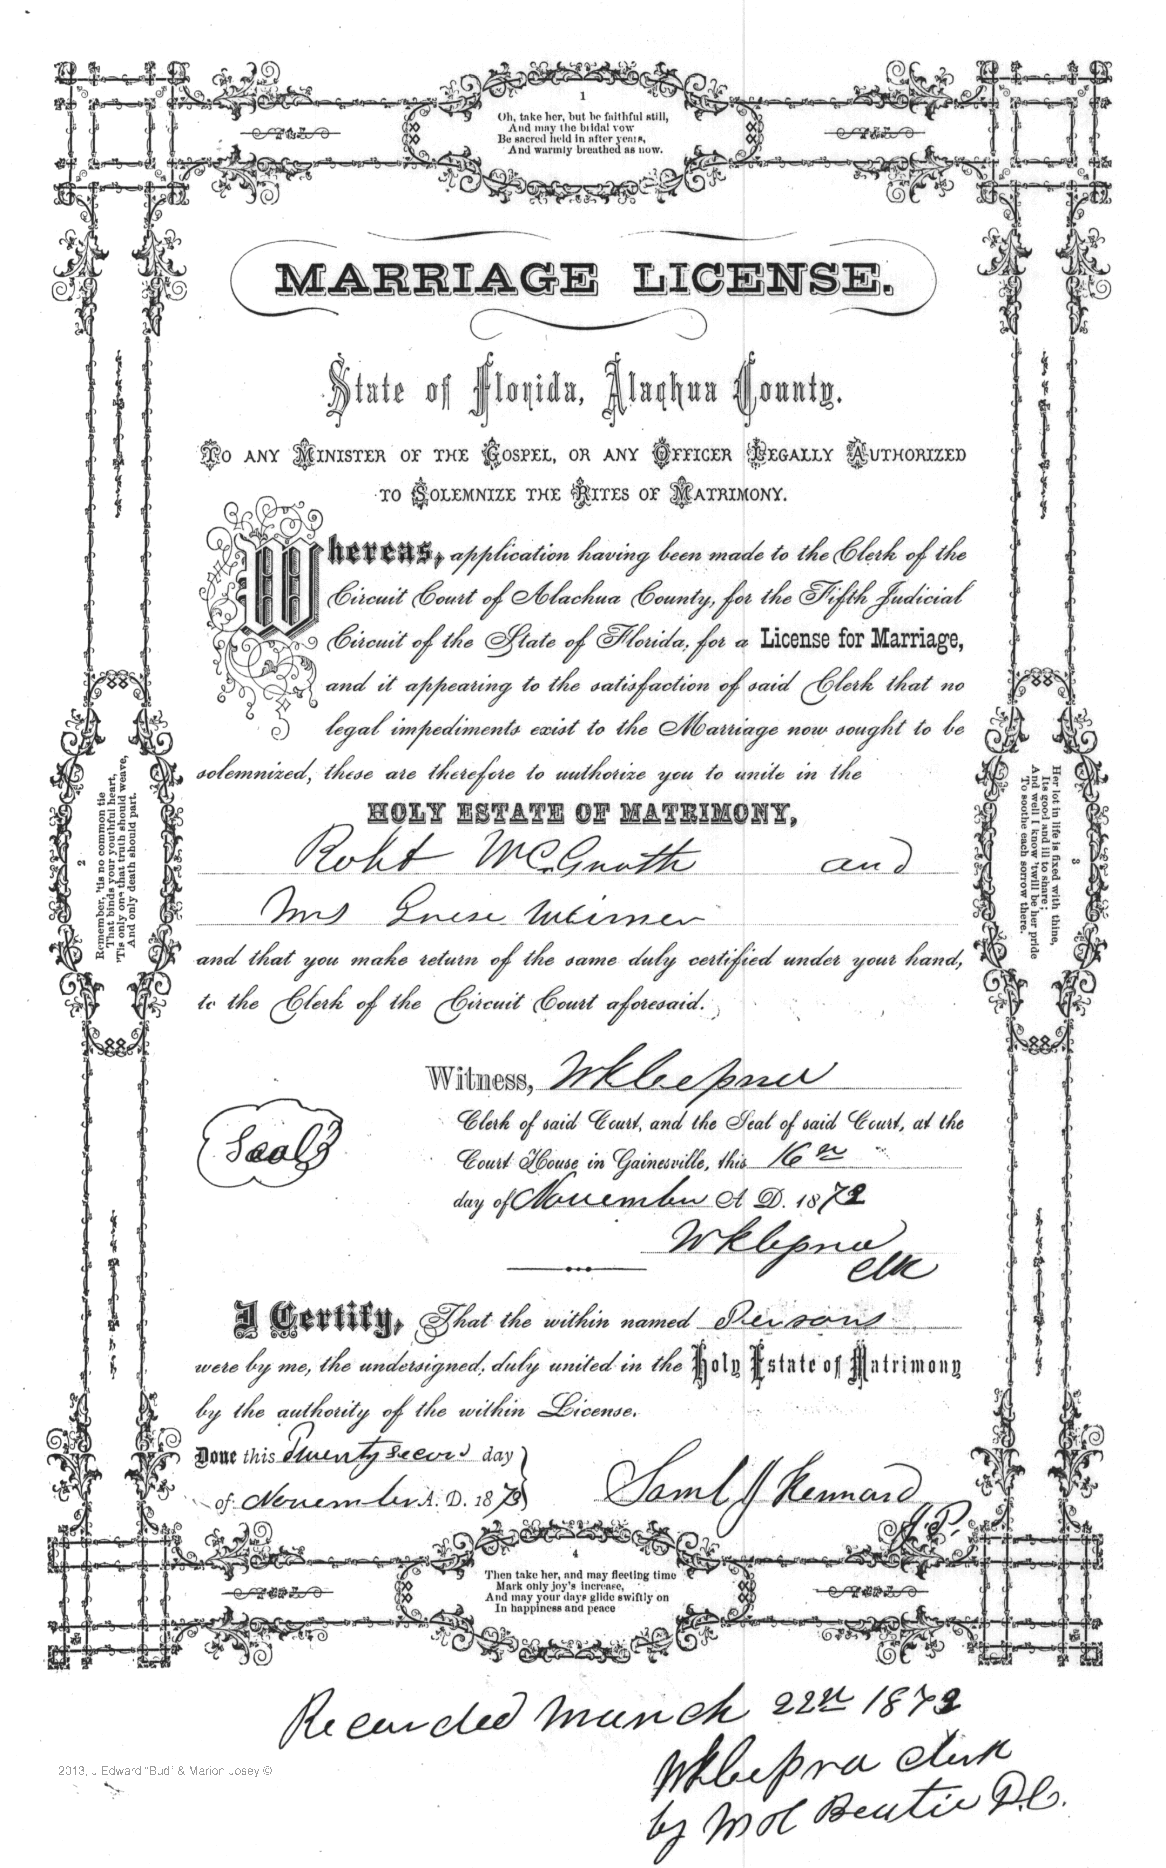 1
Oh, take her, but be faithful still,
And may the bridal vow
Be sacred held in after years,
And warmly breathed as now.
MARRIAGE LICENSE.
State of Florida, Alachua County.
TO ANY MINISTER OF THE GOSPEL, OR ANY OFFICER LEGALLY AUTHORIZED
TO SOLEMNIZE THE RITES OF MATRIMONY.
Whereas, application having been made to the Clerk of the
Circuit Court of Alachua County, for the Fifth Judicial
Circuit of the State of Florida, for a License for Marriage,
and it appearing to the satisfaction of said Clerk that no
legal impediments exist to the Marriage now sought to be
solemnized, these are therefore to authorize you to unite in the
HOLY ESTATE OF MATRIMONY,
Robt and
Mrs
and that you make return of the same duly certified under your hand,
to the Clerk of the Circuit Court aforesaid.
Witness,
Clerk of said Court, and the Seal of said Court, at the
Court House in Gainesville, this 16th
day of November A. D. 187
Seal
Clk
I Certify, That the within named Persons
were by me, the undersigned, duly united in the Holy Estate of Matrimony
by the authority of the within License.
Done this Twenty Second day
of November A. D. 187
Saml J Kennard
J.P.
2
Remember, 'tis no common tie
That binds your youthful heart,
'Tis only one that truth should weave,
And only death should part.
3
Her lot in life is fixed with thine,
Its good and ill to share;
And well I know 'twill be her pride
To soothe each sorrow there.
4
Then take her, and may fleeting time
Mark only joy's increase,
And may your days glide swiftly on
In happiness and peace
Recorded March 22nd 187
Clerk
by D.C.
2013, J Edward "Bud" & Marion Josey ©